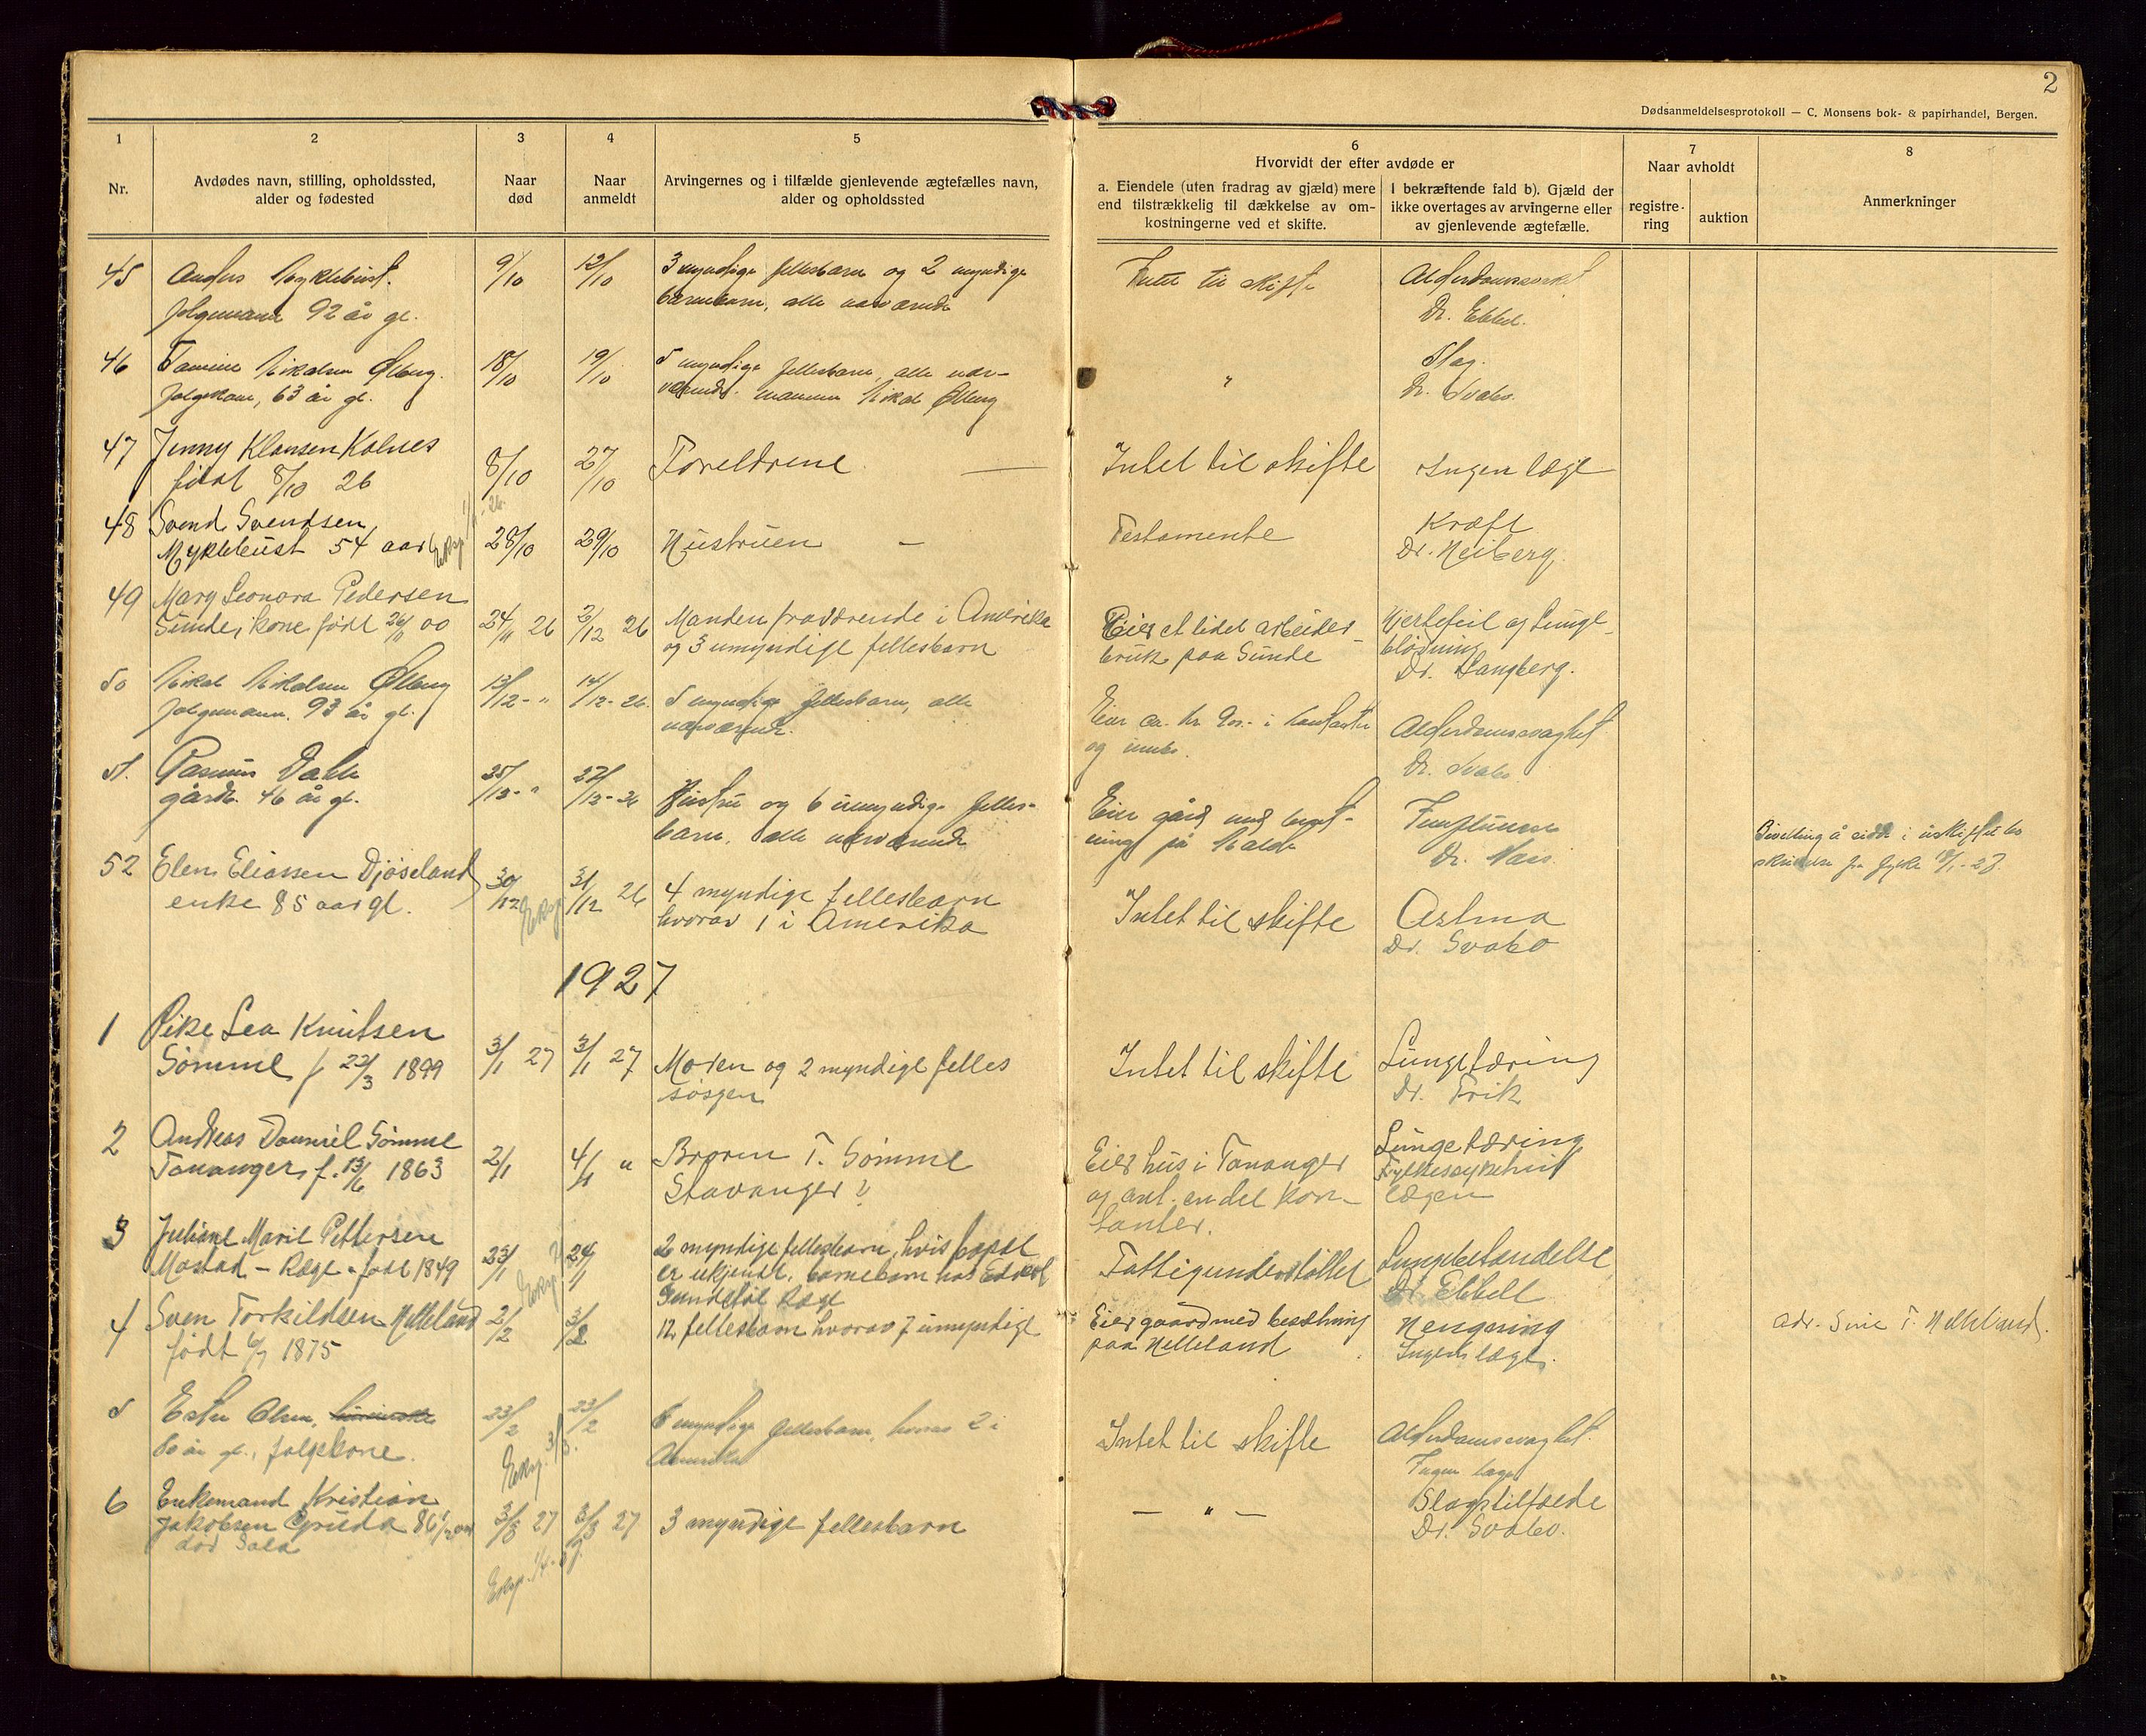 2
Dødsanmeldelsesprotokoll — C. Monsens bok- & papirhandel, Bergen.
1
Nr.
2
Avdødes navn, stilling, opholdssted,
alder og fødested
3
Naar
død
4
Naar
anmeldt
5
Arvingernes og i tilfælde gjenlevende ægtefælles navn,
alder og opholdssted
6
Hvorvidt der efter avdøde er
a. Eiendele (uten fradrag av gjæld) mere
end tilstrækkelig til dækkelse av om-
kostningerne ved et skifte.
I bekræftende fald b). Gjæld der
ikke overtages av arvingerne eller
av gjenlevende ægtefælle.
7
Naar avholdt
registre-
ring
auktion
8
Anmerkninger
45
Anders Myklebust.
folgemann 92 år gl.
9/10
12/10
3 myndige fellesbarn og 2 myndige
barnebarn, alle nærværende
Intet til skifte
Dr. Ebbel.
46
Mikalsen Ølberg.
folgekone, 63 år gl.
18/10
19/10
5 myndige fellesbarn, alle nær-
værende. mannen Mikal Ølberg
"
Slag.
Dr. Svabo.
47
Jenny Klausen Kolnes
født 8/10 26
8/10
27/10
Foreldrene —
Intet til skifte
Ingen læge
48
Svend Svendsen,
Myklebust 54 aar
28/10
29/10
Hustruen —
Testamente
Kræft
Dr. Heiberg.
49
Mary Leonora Pedersen
Sunde, kone født 00
24/11 26
2/12 26
Manden fraværende i Amerika
og 3 umyndige fellesbarn
Eier et lidet arbeider-
bruk paa Sunde
Hjertefeil og lunge-
blødning
Dr. Langberg.
50
Mikal Mikalsen Ølberg
folgemann. 93 år gl.
13/12 - "
14/12 - 26.
5 myndige fellesbarn, alle
nærværende.
og innbo.
Alderdomssvaghet
Dr. Svabo
51.
Rasmus Dahle
gårdb. 46 år gl.
25/12 - "
27/12 - 26
Hustru og 6 umyndige felles-
barn. alle nærværende
Eier gård med besæt-
ning på
Dr. Næss.
52
Elen Eliassen Djøseland
enke 85 aar gl.
30/12
31/12 26
4 myndige fellesbarn
hvorav 1 i Amerika
Intet til skifte
Astma
Dr. Svabo
1927
1
Pike Lea Knutsen
Sømme f 23/3 1899
3/1 27
3/1 27
Moren og 2 myndige felles
søsgen
Intet til skifte
Lungetæring
Dr. Frik
2
Andreas Daniel Sømme
Tananger f. 13/6 1863
2/1
4/1 "
Broren T. Sømme
Stavanger?
Eier hus i Tananger
og ant. en del kon-
tanter.
Lungetæring
Fylkessykehus
lægen
3
Juliane Marie Pettersen
Mostad - Ræge - født 1849
23/1
24/1
2 myndige fellesbarn, hvis bopæl
er ukjendt, barnebarn hos Edvard
Ræge
Fattigunderstøttet
Lungebetændelse
Dr. Ebbell
4
Sven Torkildsen Melleland
født 6/7 1875
2/2
3/2
12 fellesbarn hvorav 7 umyndige
Eier gaard med besætning
paa Melleland
Hengning
Ingen læge.
5
Ester Olsen,
80 år gl., folgekone.
23/2
23/2
6 myndige fellesbarn, hvorav 2 i
Amerika
Intet til skifte
Alderdomssvaghet.
Ingen læge
6
Enkemand Kristian
Jakobsen Gruda 86 1/2 aar
død Sola
3/3 27
3/3 27
3 myndige fellesbarn
— " —
Slagtilfælde
Dr. Svabo.